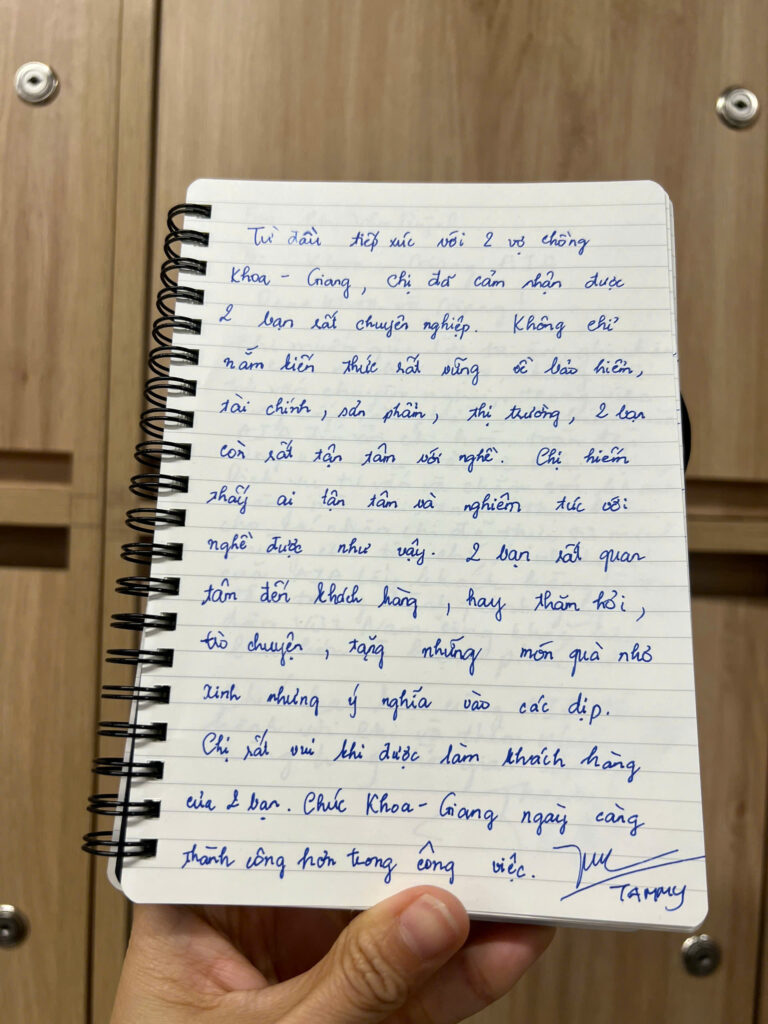 Từ đầu tiếp xúc với 2 vợ chồng
Khoa - Giang, chị đã cảm nhận được
2 bạn rất chuyên nghiệp. Không chỉ
nắm kiến thức rất vững về bảo hiểm,
tài chính, sản phẩm, thị trường, 2 bạn
còn rất tận tâm với nghề. Chị hiếm
thấy ai tận tâm và nghiêm túc với
nghề được như vậy. 2 bạn rất quan
tâm đến khách hàng, hay thăm hỏi,
trò chuyện, tặng những món quà nhỏ
xinh nhưng ý nghĩa vào các dịp.
Chị rất vui khi được làm khách hàng
của 2 bạn. Chúc Khoa - Giang ngày càng
thành công hơn trong công việc.
TAMMY